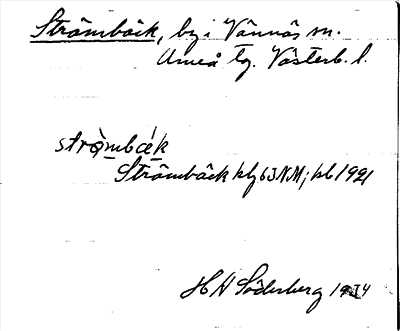 Strömbäck, by i Vännäs sn.
Umeå tg. Västerb. l.
strö̀mbæ̀k
Strömbäck klg 63 NM; kb 1921
H H Söderberg 1934